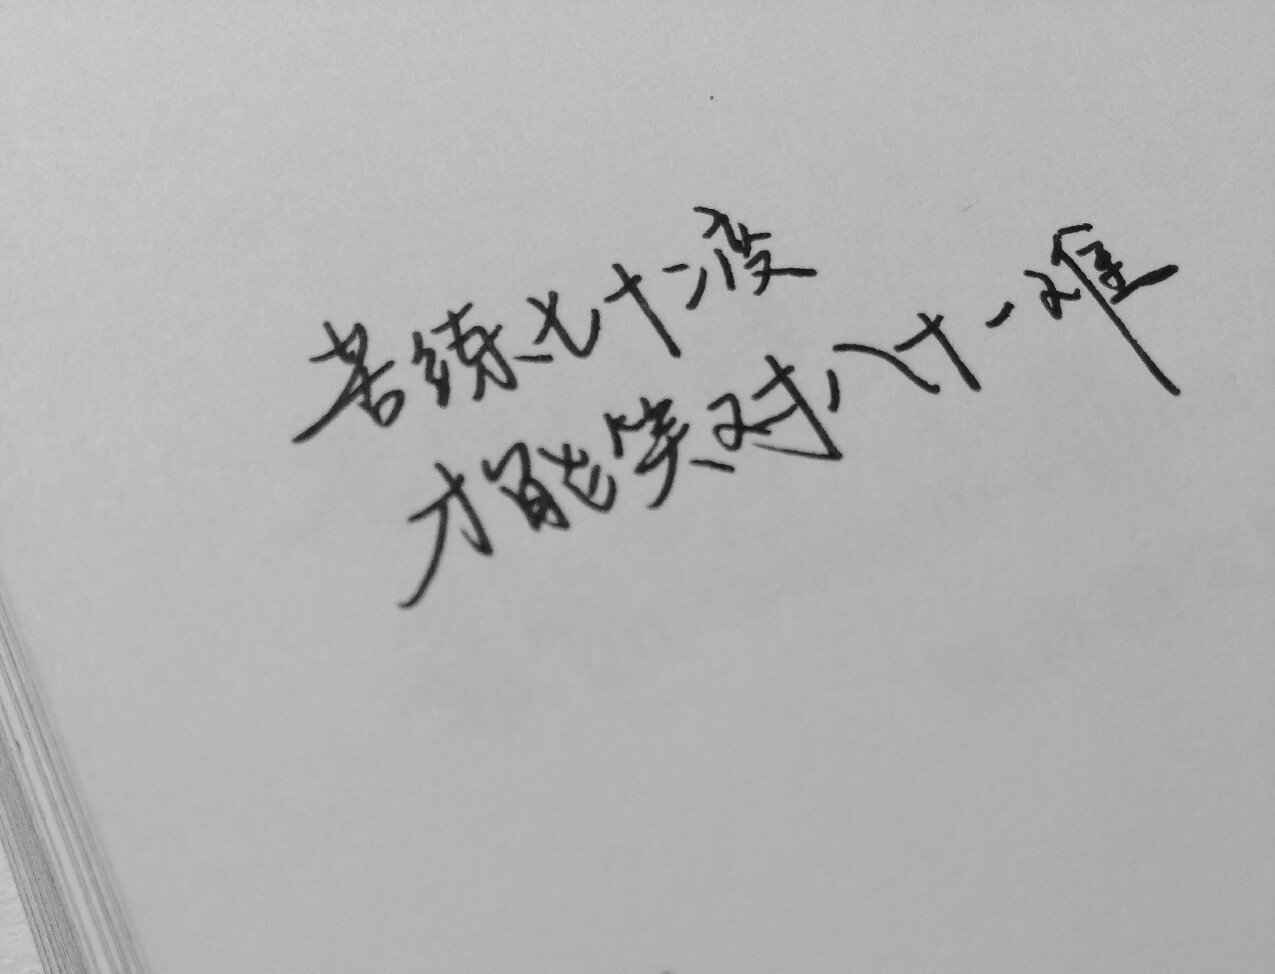 苦练七十二变
才能笑对八十一难